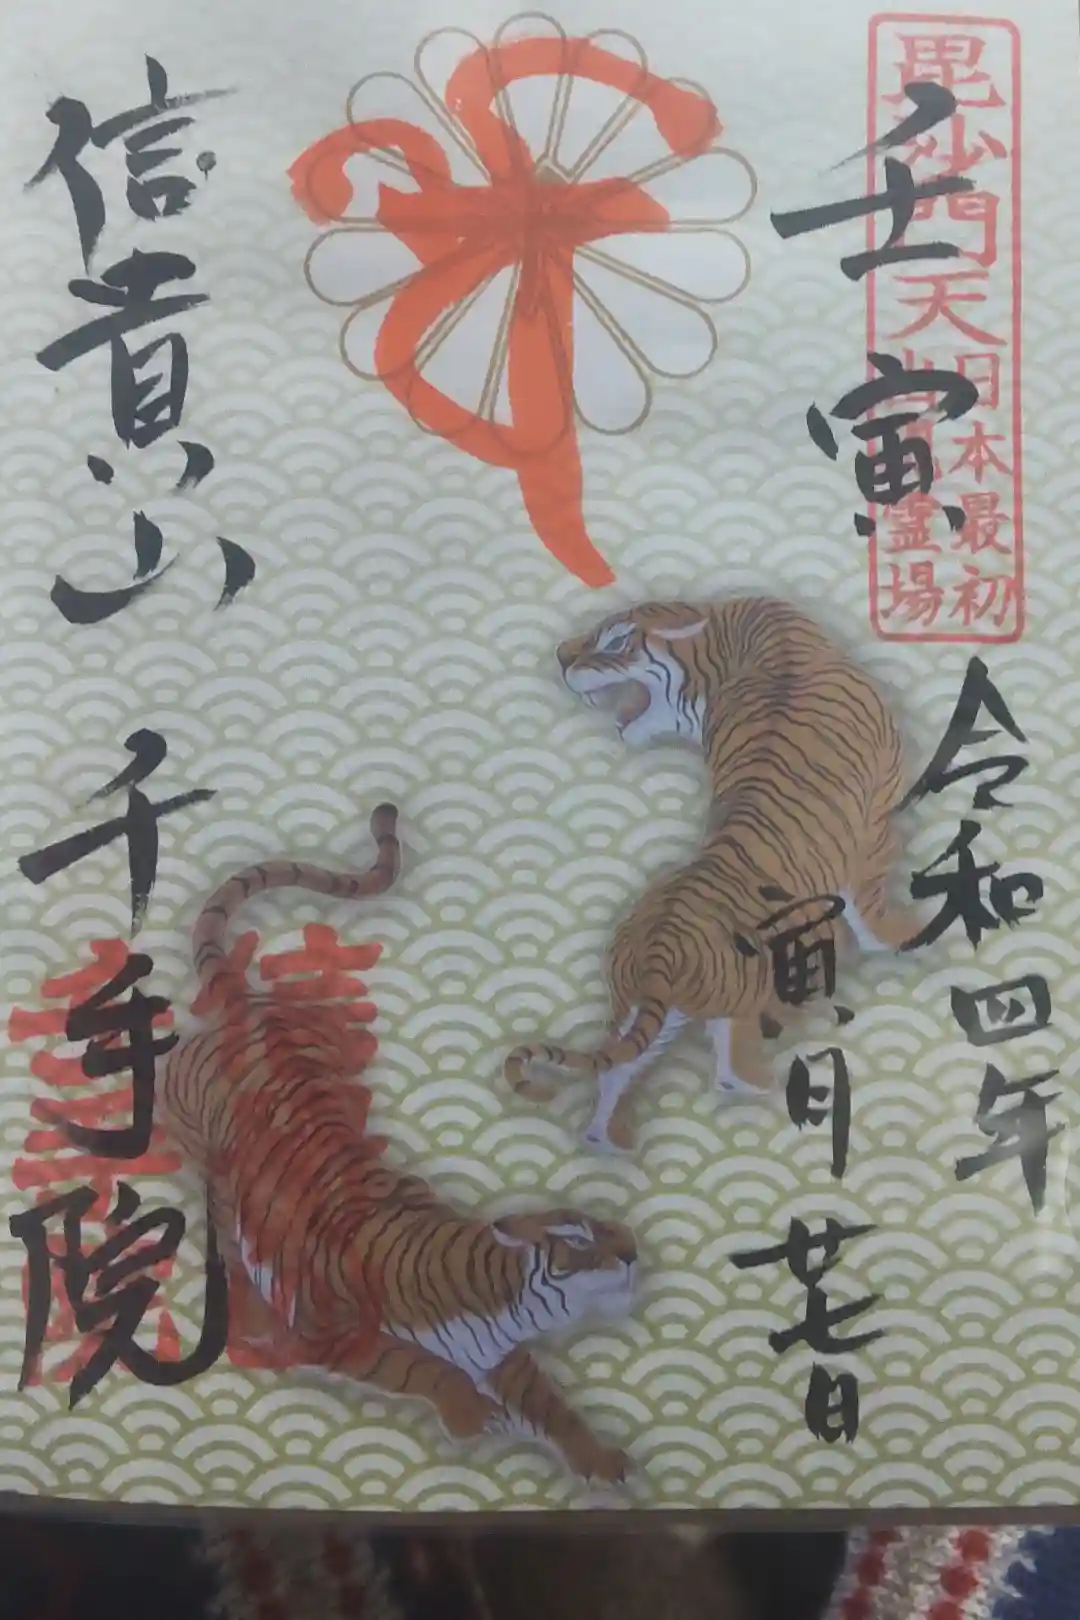 毘沙門天
日本最初
出現霊場
壬寅
令和四年
寅月廿七日
信貴山 千手院